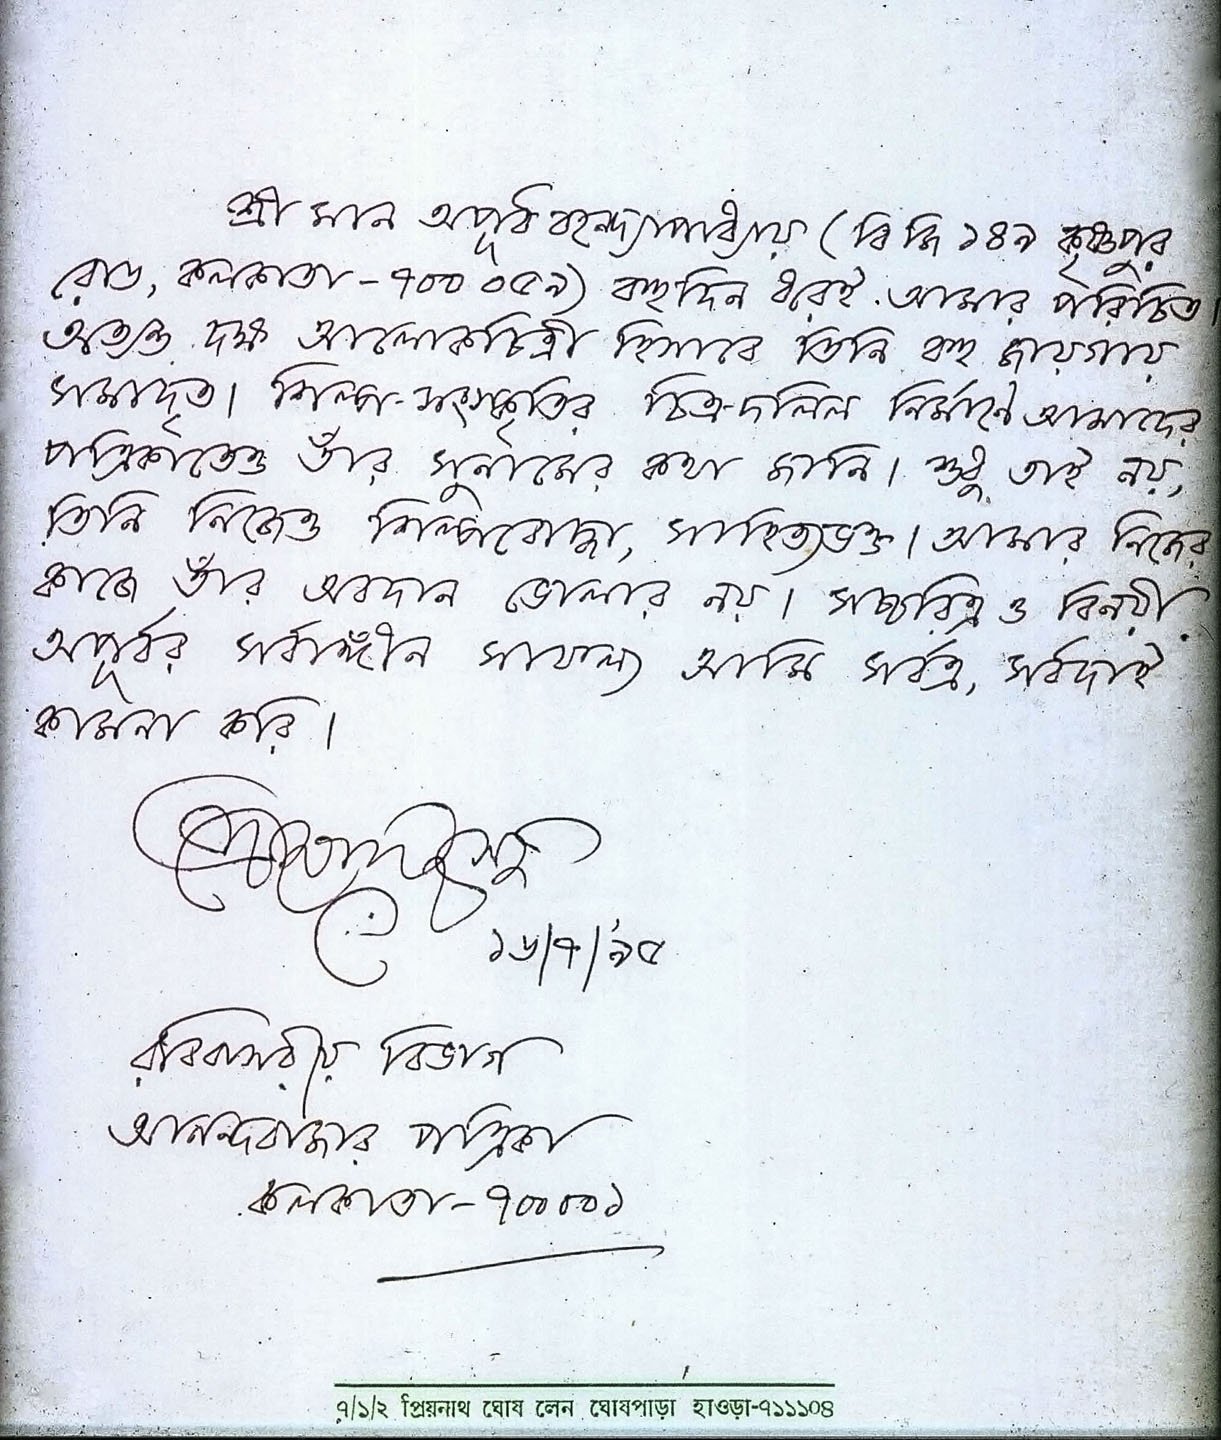 শ্রীমান অপূর্ব বন্দ্যোপাধ্যায় (বি জি ১৪৯ কৃষ্ণপুর
রোড, কলকাতা - ৭০০ ০৫৯) বহুদিন ধরেই আমার পরিচিত।
অত্যন্ত দক্ষ আলোকচিত্রী হিসাবে তিনি বহু জায়গায়
সমাদৃত। শিল্প-সংস্কৃতির চিত্র-দলিল নির্মাণে আমাদের
পত্রিকাতেও তাঁর সুনামের কথা জানি। শুধু তাই নয়,
তিনি নিজেও শিল্পবোদ্ধা, সাহিত্যভক্ত। আমার নিজের
কাজে তাঁর অবদান ভোলার নয়। সচ্চরিত্র ও বিনয়ী
অপূর্বর সর্বাঙ্গীন সাফল্য আমি সর্বত্র, সর্বদাই
কামনা করি।
১৬/৭/'৯৫
রবিবাসরীয় বিভাগ
আনন্দবাজার পত্রিকা
কলকাতা - ৭০০০০১
৭/১/২ প্রিয়নাথ ঘোষ লেন ঘোষপাড়া হাওড়া-৭১১১০৪